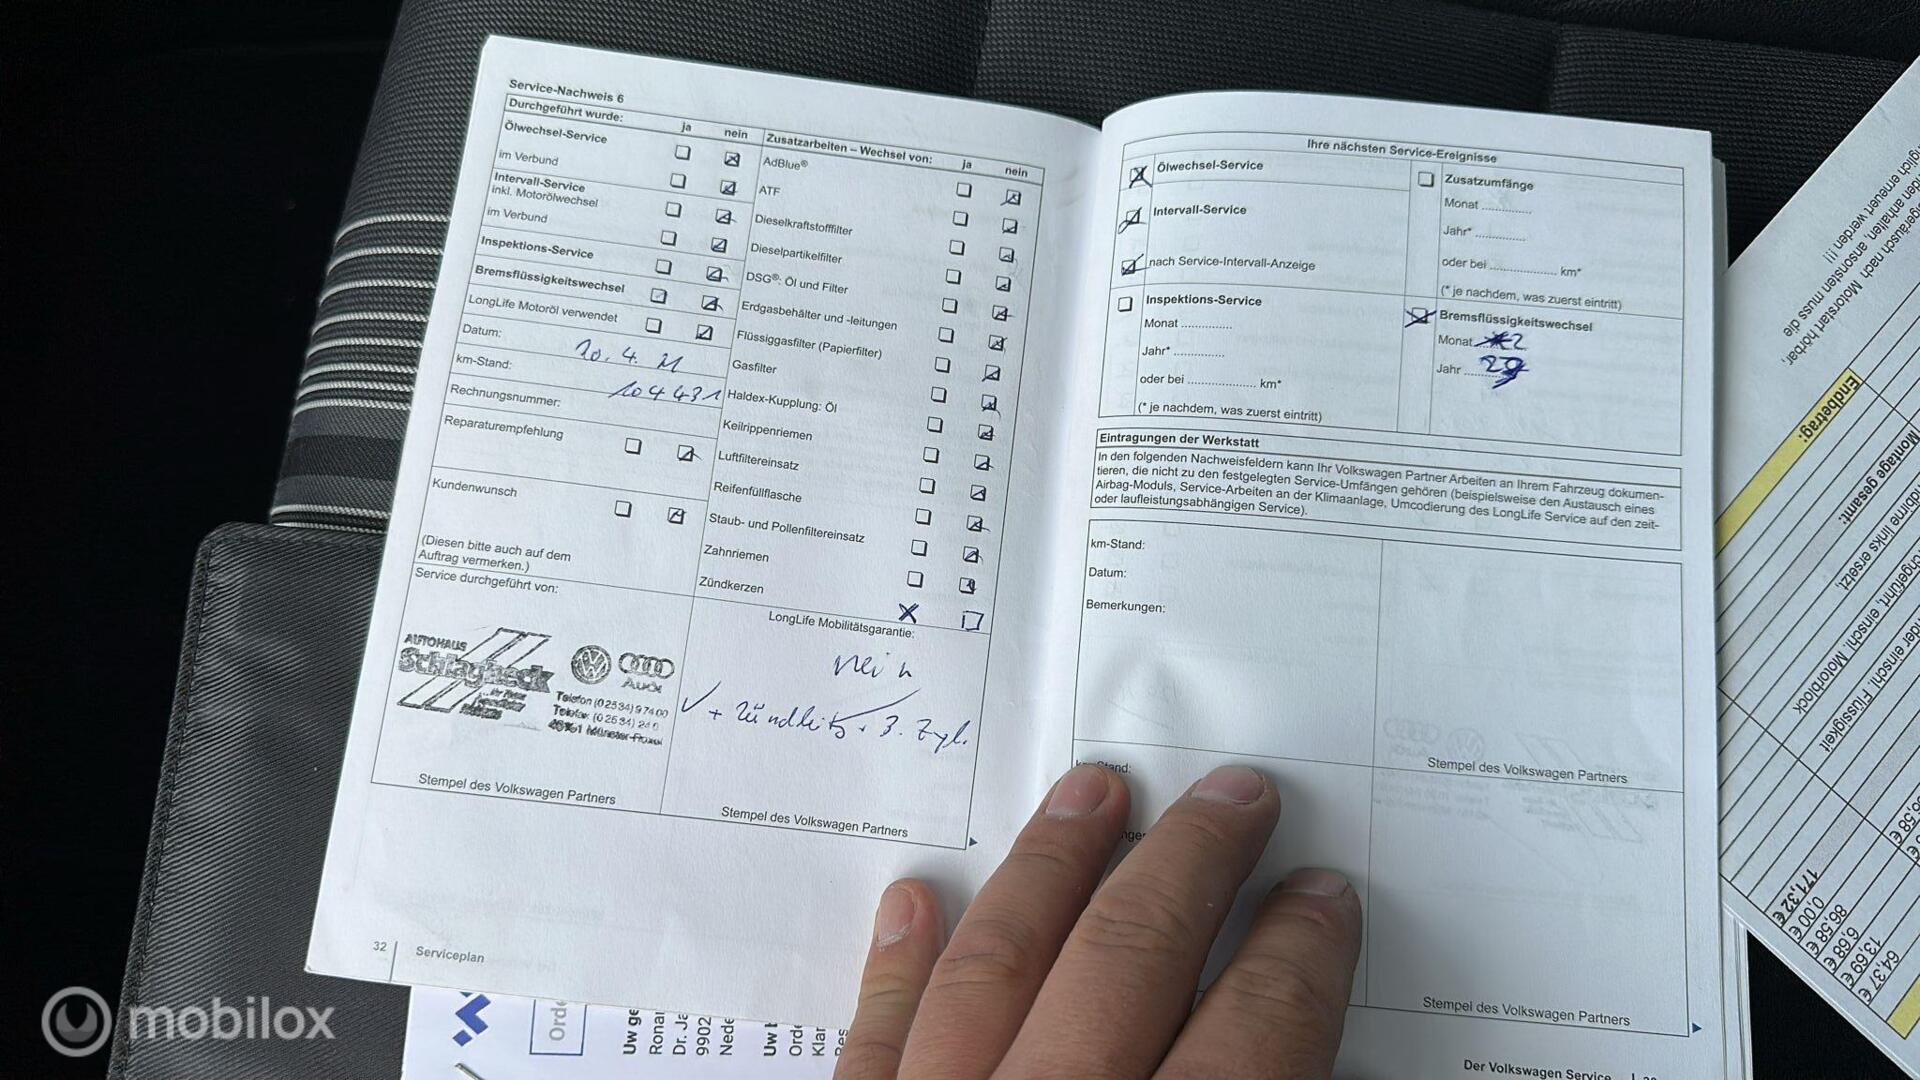 Service-Nachweis 6
Durchgeführt wurde:
ja nein
Ölwechsel-Service
im Verbund
Intervall-Service
inkl. Motorölwechsel
im Verbund
Inspektions-Service
Bremsflüssigkeitswechsel
LongLife Motoröl verwendet
Datum:
km-Stand:
104431
Rechnungsnummer:
Reparaturempfehlung
Kundenwunsch
(Diesen bitte auch auf dem
Auftrag vermerken.)
Service durchgeführt von:
AUTOHAUS
Schlagheck
Audi
Telefon (02534) 97400
Stempel des Volkswagen Partners
Zusatzarbeiten – Wechsel von:
ja nein
AdBlue®
ATF
Dieselkraftstofffilter
Dieselpartikelfilter
DSG®: Öl und Filter
Erdgasbehälter und -leitungen
Flüssiggasfilter (Papierfilter)
Gasfilter
Haldex-Kupplung: Öl
Keilrippenriemen
Luftfiltereinsatz
Reifenfüllflasche
Staub- und Pollenfiltereinsatz
Zahnriemen
Zündkerzen
LongLife Mobilitätsgarantie:
nein
3. Zyl.
Stempel des Volkswagen Partners
32
Serviceplan
Ihre nächsten Service-Ereignisse
Ölwechsel-Service
Intervall-Service
nach Service-Intervall-Anzeige
Inspektions-Service
Monat ...............
Jahr* ...............
oder bei .................... km*
(* je nachdem, was zuerst eintritt)
Zusatzumfänge
Monat ...............
Jahr* ...............
oder bei .................... km*
(* je nachdem, was zuerst eintritt)
Bremsflüssigkeitswechsel
Monat
Jahr
Eintragungen der Werkstatt
In den folgenden Nachweisfeldern kann Ihr Volkswagen Partner Arbeiten an Ihrem Fahrzeug dokumen-
tieren, die nicht zu den festgelegten Service-Umfängen gehören (beispielsweise den Austausch eines
Airbag-Moduls, Service-Arbeiten an der Klimaanlage, Umcodierung des LongLife Service auf den zeit-
oder laufleistungsabhängigen Service).
km-Stand:
Datum:
Bemerkungen:
Stempel des Volkswagen Partners
Stempel des Volkswagen Partners
Der Volkswagen Service
Endbetrag:
Montage gesamt:
links ersetzt,
einschl. Motorblock
einschl. Flüssigkeit
Motorstart hörbar,
anhalten, ansonsten muss die
erneuert werden !!!
171,32 €
0,00 €
86,58 €
6,68 €
13,69 €
64,37 €
Orde
Uw ge
Ronar
Dr. Ja
9902
Nede
Uw b
Orde
Klan
mobilox